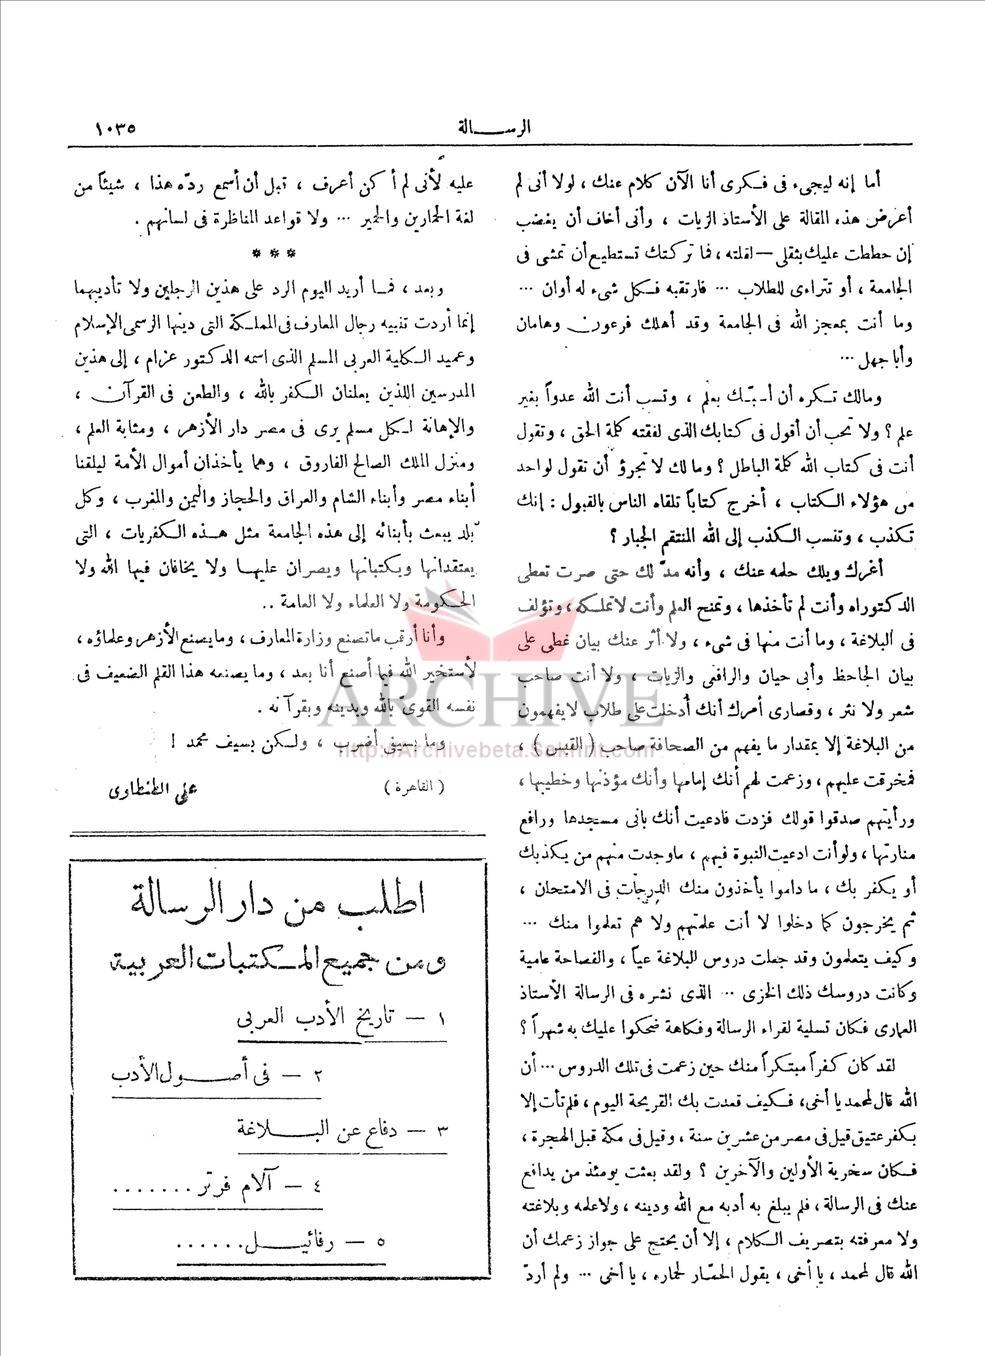 الرسالة
١٠٣٥
أما إنه ليجيء في فكري أنا الآن كلام عنك ، لولا أنى لم
أعرض هذه المقالة على الأستاذ الزيات ، وأنى أخاف أن يغضب
إن حططت عليك بثقلى — لقلته ، فما تركتك تستطيع أن تمشى في
الجامعة ، أو تتراءى للطلاب ... فارتقبه فكل شىء له أوان ...
وما أنت بمعجز الله في الجامعة وقد أهلك فرعون وهامان
وأبا جهل ...
ومالك تكره أن أسبّك بعلم ، وتسب أنت الله عدواً بغير
علم ؟ ولا تحب أن أقول في كتابك الذى لفقته كلمة الحق ، وتقول
أنت في كتاب الله كلمة الباطل ؟ وما لك لا تجرؤ أن تقول لواحد
من هؤلاء الكتاب ، أخرج كتاباً تلقاه الناس بالقبول : إنك
تكذب ، وتنسب الكذب إلى الله المنتقم الجبار ؟
أغرك ويلك حلمه عنك ، وأنه مدّ لك حتى صرت تعطى
الدكتوراه وأنت لم تأخذها ، وتمنح العلم وأنت لا تملكه ، وتؤلف
في البلاغة ، وما أنت منها في شىء ، ولا أثر عنك بيان غطى على
بيان الجاحظ وأبى حيان والرافعى والزيات ، ولا أنت صاحب
شعر ولا نثر ، وقصارى أمرك أنك أُدخلت على طلاب لا يفهمون
من البلاغة إلا بمقدار ما يفهم من الصحافة صاحب ( القبس ) ،
فمخرقت عليهم ، وزعمت لهم أنك إمامها وأنك مؤذنها وخطيبها ،
ورأيتهم صدقوا قولك فزدت فادعيت أنك بانى مسجدها ورافع
منارتها ، ولو أنت ادعيت النبوة فيهم ، ما وجدت منهم من يكذبك
أو يكفر بك ، ما داموا يأخذون منك الدرجات في الامتحان ،
ثم يخرجون كما دخلوا لا أنت علمتهم ولا هم تعلموا منك ...
وكيف يتعلمون وقد جعلت دروس البلاغة عياً ، والفصاحة عامية
وكانت دروسك ذلك الخزى ... الذى نشره في الرسالة الأستاذ
العمارى فكان تسلية لقراء الرسالة وفكاهة ضحكوا عليك به شهراً ؟
لقد كان كفراً مبتكراً منك حين زعمت في تلك الدروس ... أن
الله قال لمحمد يا أخى ، فكيف قعدت بك القريحة اليوم ، فلم تأت إلا
بكفر عتيق قيل في مصر من عشرين سنة ، وقيل في مكة قبل الهجرة ،
فكان سخرية الأولين والآخرين ؟ ولقد بعثت يومئذ من يدافع
عنك في الرسالة ، فلم يبلغ به أدبه مع الله ودينه ، ولا علمه وبلاغته
ولا معرفته بتصريف الكلام ، إلا أن يحتج على جواز زعمك أن
الله قال لمحمد ، يا أخى ، بقول الحمّار لحماره ، يا أخى ... ولم أردّ
عليه لأنى لم أكن أعرف ، قبل أن أسمع ردّه هذا ، شيئاً من
لغة الحمارين والحمير ... ولا قواعد المناظرة في لسانهم .
* * *
وبعد ، فما أريد اليوم الرد على هذين الرجلين ولا تأديبهما
إنما أردت تنبيه رجال المعارف في المملكة التى دينها الرسمى الإسلام
وعميد الكلية العربى المسلم الذى اسمه الدكتور عزام ، إلى هذين
المدرسين اللذين يعلنان الكفر بالله ، والطعن في القرآن ،
والإهانة لكل مسلم يرى في مصر دار الأزهر ، ومثابة العلم ،
ومنزل الملك الصالح الفاروق ، وهما يأخذان أموال الأمة ليلقنا
أبناء مصر وأبناء الشام والعراق والحجاز واليمن والمغرب ، وكل
بلد يبعث بأبنائه إلى هذه الجامعة مثل هذه الكفريات ، التى
يعتقدانها ويكتبانها ويصران عليها ولا يخافان فيها الله ولا
الحكومة ولا العلماء ولا العامة ..
وأنا أرقب ما تصنع وزارة المعارف ، وما يصنع الأزهر وعلماؤه ،
لأستخير الله فيما أصنع أنا بعد ، وما يصنعه هذا القلم الضعيف في
نفسه القوى بالله وبدينه وبقرآنه .
وما بسيفى أضرب ، ولكن بسيف محمد !
( القاهرة )
على الطنطاوى
اطلب من دار الرسالة
ومن جميع المكتبات العربية
١ — تاريخ الأدب العربى
٢ — في أصول الأدب
٣ — دفاع عن البلاغة
٤ — آلام فرتر .......
٥ — رفائيل ......
ARCHIVE
http://Archivebeta.Sakhrit.com